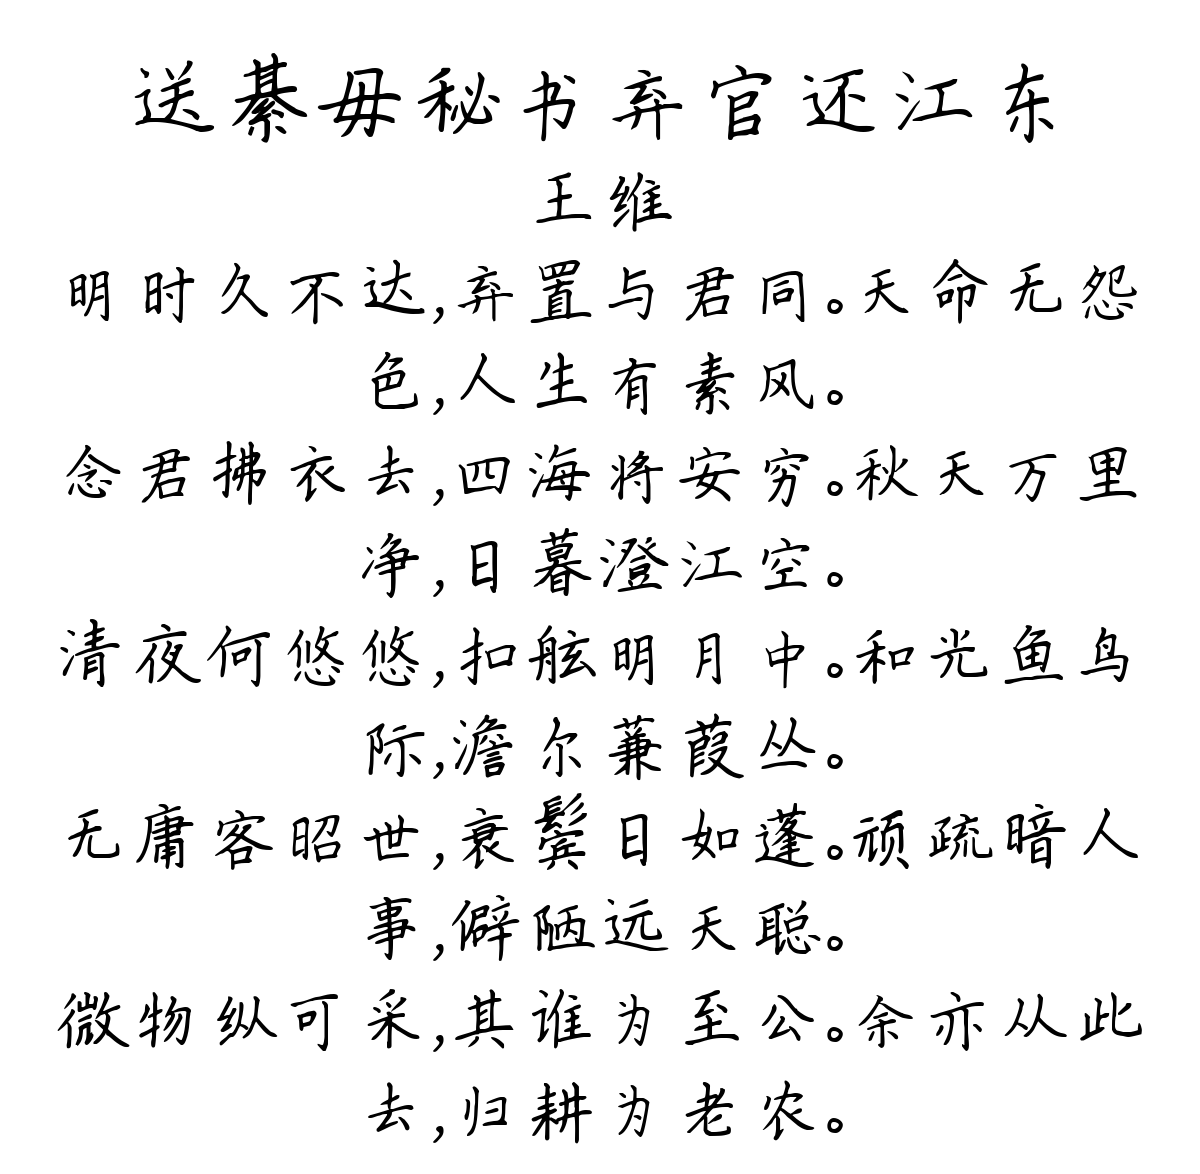 送綦毋秘书弃官还江东
王维
明时久不达,弃置与君同。天命无怨
色,人生有素风。
念君拂衣去,四海将安穷。秋天万里
净,日暮澄江空。
清夜何悠悠,扣舷明月中。和光鱼鸟
际,澹尔蒹葭丛。
无庸客昭世,衰鬓日如蓬。顽疏暗人
事,僻陋远天聪。
微物纵可采,其谁为至公。余亦从此
去,归耕为老农。